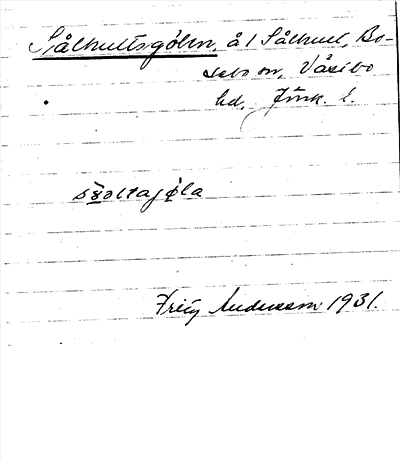 Sålhultsgölen, å 1 Sålhult, Bo-
sebo sn, Västbo
hd, Jönk. l.
Fritz Andersson 1931.